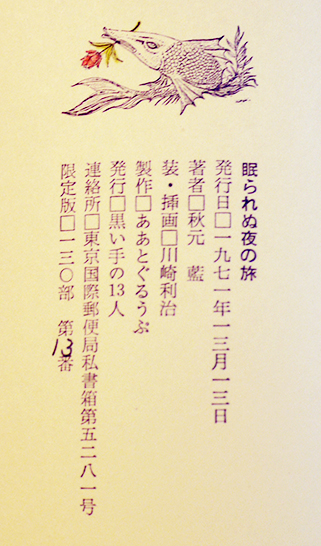 眠られぬ夜の旅
発行日□一九七一年一三月一三日
著者□秋元 藍
装・挿画□川崎利治
製作□ああとぐるうぷ
発行□黒い手の13人
連絡所□東京国際郵便局私書箱第五二八一号
限定版□一三〇部 第13番